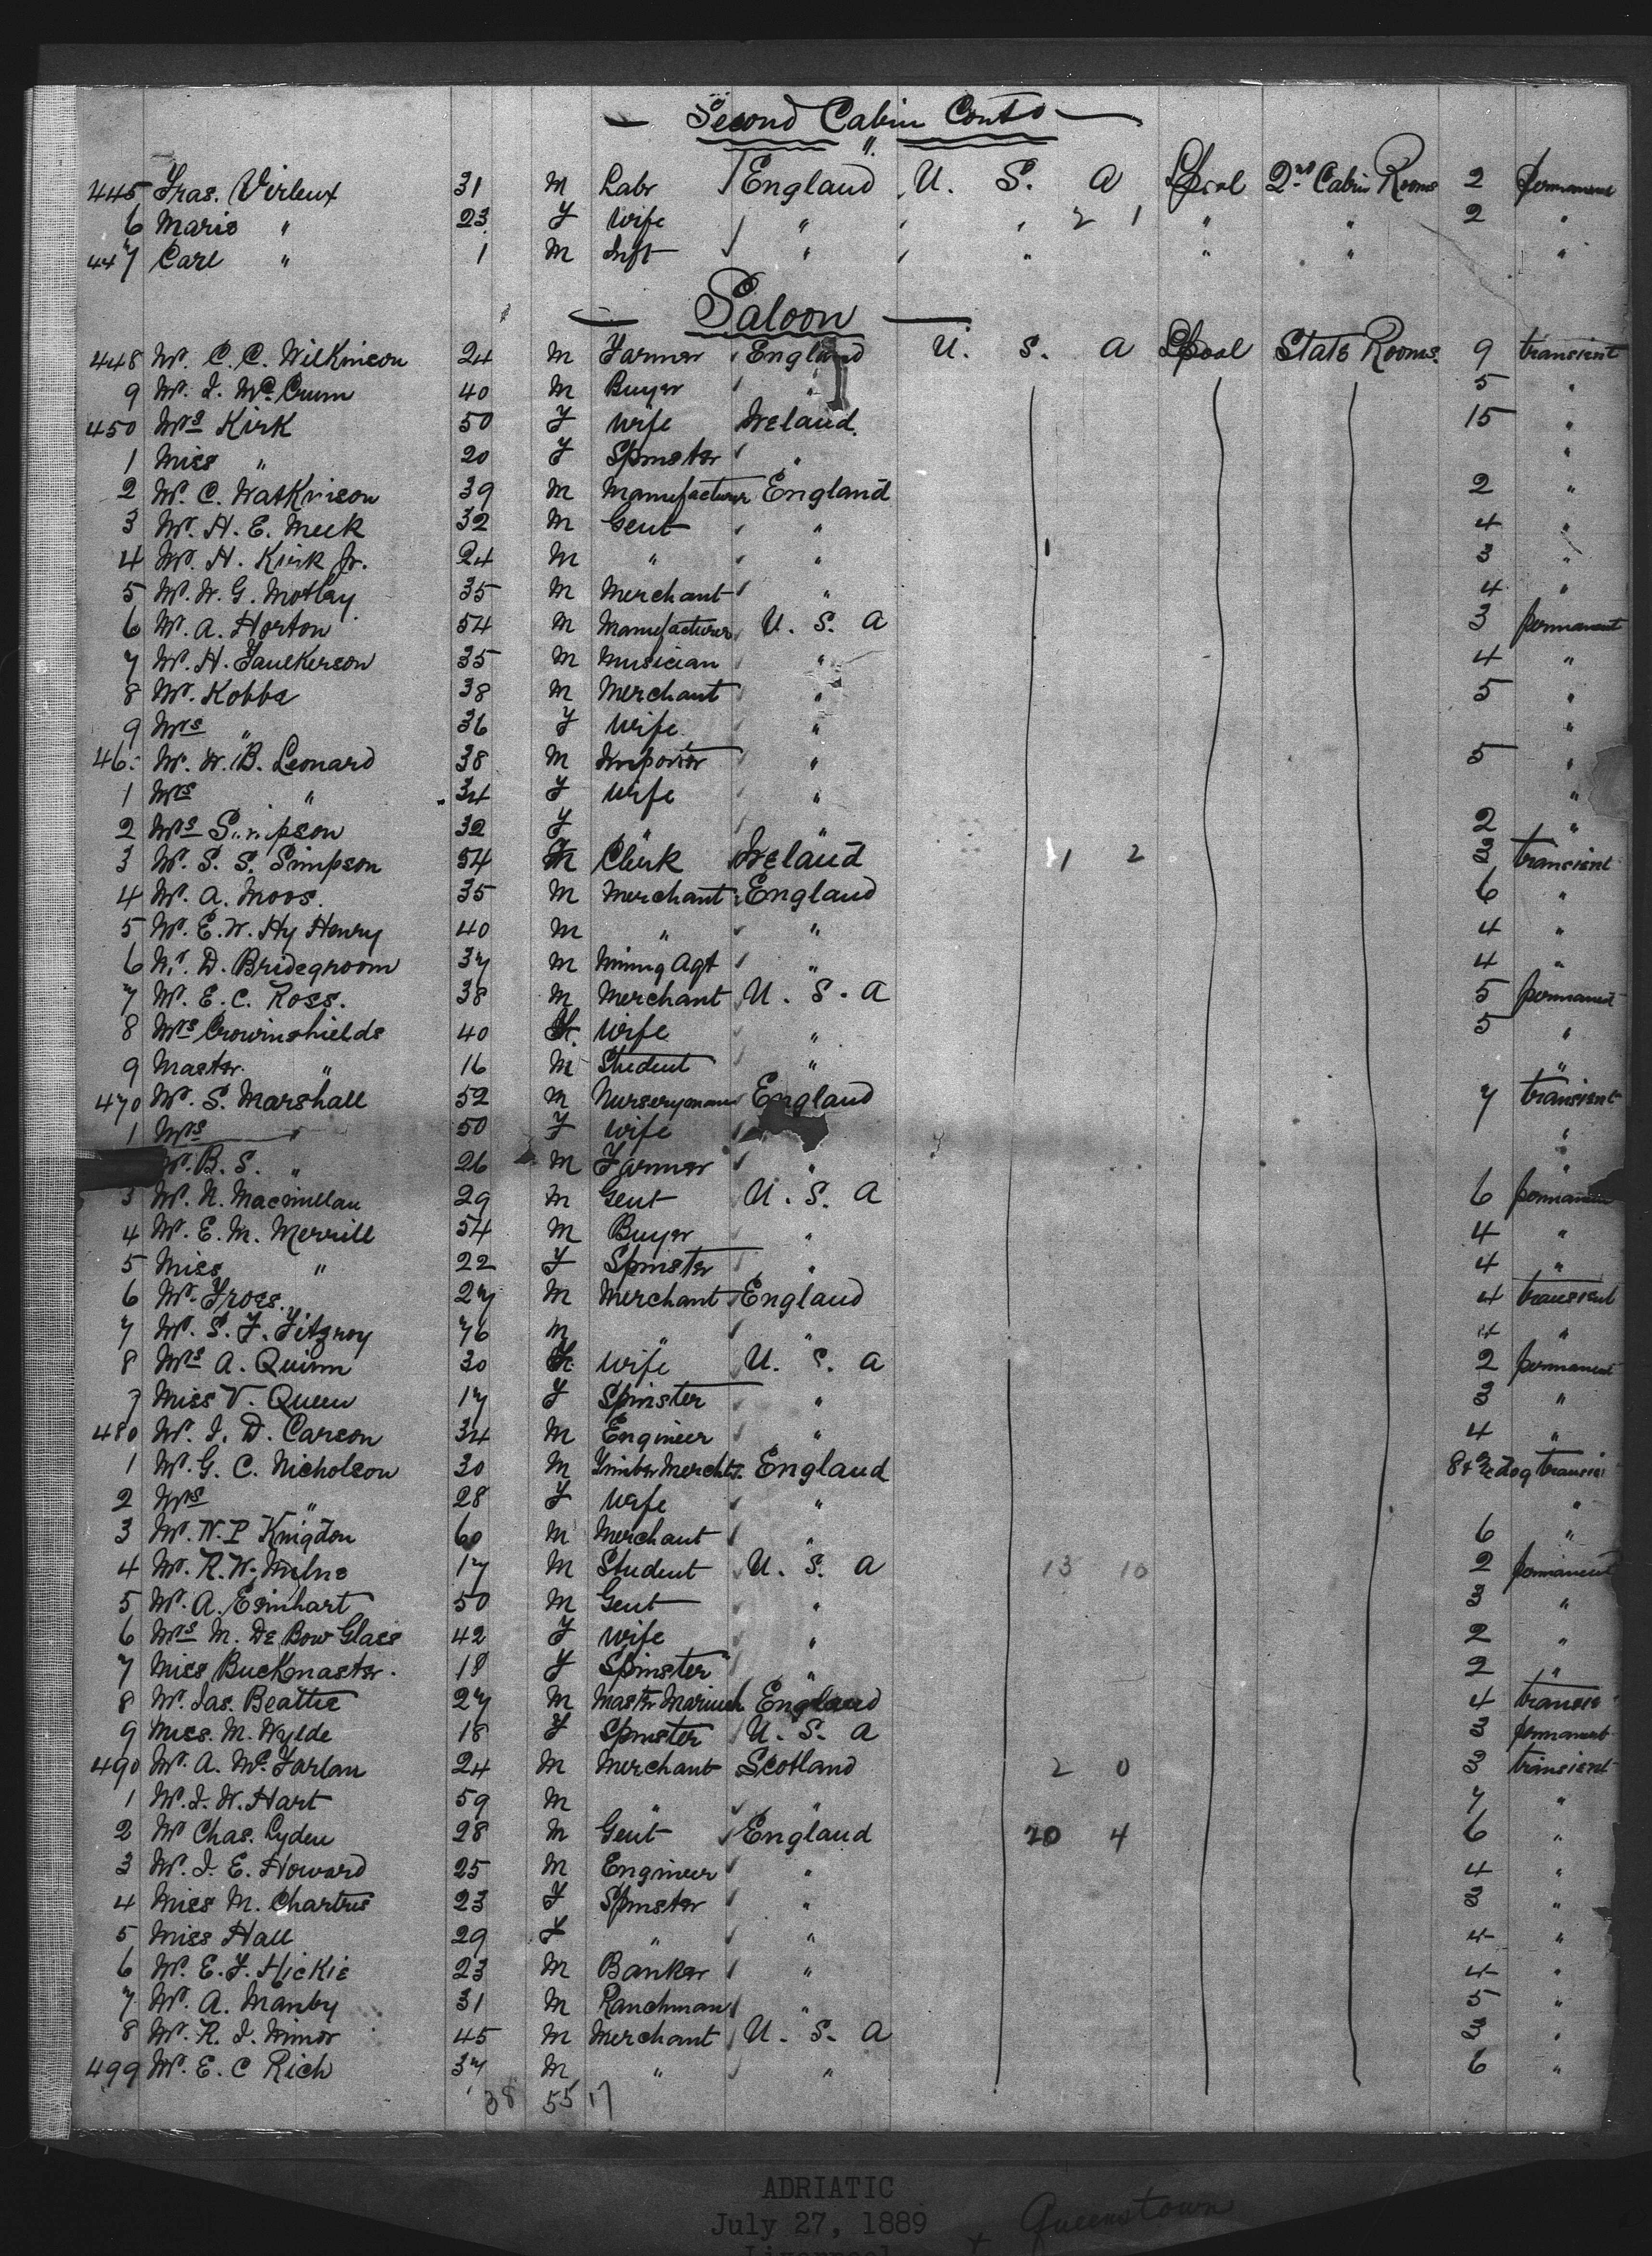 Second Cabin Contd
445 Fras. Virleux 31 M Labr England U. S. A Lpool 2nd Cabin Rooms 2 permanent
6 Marie " 23 F Wife " " 2 1 " " 2 "
447 Carl " 1 M Inft " " " " "
Saloon
448 Mr. C. C. Wilkinson 24 M Farmer England U. S. A Lpool State Rooms. 9 transient
9 Mr. J. McCrum 40 M Buyer " 5 "
450 Mrs Kirk 50 F Wife Ireland. 15 "
1 Miss " 20 F Spinster " "
2 Mr. C. Watkinson 39 M Manufacturer England 2 "
3 Mr. H. E. Meek 32 M Gent " 4 "
4 Mr. H. Kirk Jr. 24 M " " 1 3 "
5 Mr. W. G. Motley 35 M Merchant " 4 "
6 Mr. A. Horton 54 M Manufacturer U. S. A 3 permanent
7 Mr. H. Faulkerson 35 M Musician " 4 "
8 Mr. Kobbe 38 M Merchant " 5 "
9 Mrs " 36 F Wife " "
46 Mr. W. B. Leonard 38 M Importer " 5 "
1 Mrs " 34 F Wife " "
2 Mrs Simpson 32 F " " 2 "
3 Mr. S. S. Simpson 54 M Clerk Ireland 1 2 3 transient
4 Mr. A. Moos. 35 M Merchant England 6 "
5 Mr. E. W. Hy Henry 40 M " " 4 "
6 Mr. D. Bridegroom 37 M Mining Agt " 4 "
7 Mr. E. C. Ross. 38 M Merchant U. S. A 5 permanent
8 Mrs Crowinshields 40 F. Wife " 5 "
9 Master " 16 M Student " "
470 Mr. S. Marshall 52 M Nurseryman England 7 transient
1 Mrs " 50 F Wife "
Mr. B. S. " 26 M Farmer " "
3 Mr. N. Macmillan 29 M Gent U. S. A 6 permanent
4 Mr. E. M. Merrill 54 M Buyer " 4 "
5 Miss " 22 F Spinster " 4 "
6 Mr. Froes. 27 M Merchant England 4 transient
7 Mr. S. F. Fitzroy 76 M " " 4 "
8 Mrs A. Quinn 30 F. Wife U. S. A 2 permanent
9 Miss V. Queen 17 F Spinster " 3 "
480 Mr. J. D. Carson 34 M Engineer " 4 "
1 Mr. G. C. Nicholson 30 M Timber Merchts. England 8 & 2 dog transient
2 Mrs " 28 F Wife " "
3 Mr. W. P Kingdon 60 M Merchant " 6 "
4 Mr. R. W. Milne 17 M Student U. S. A 13 10 2 permanent
5 Mr. A. Esinhart 50 M Gent " 3 "
6 Mrs M. De Bow Glass 42 F Wife " 2 "
7 Miss Buckmaster. 18 F Spinster " 2 "
8 Mr. Jas. Beattie 27 M Master Mariner England 4 transient
9 Miss. M. Wylde 18 F Spinster U. S. A 3 permanent
490 Mr. A. McFarlan 24 M Merchant Scotland 2 0 3 transient
1 Mr. J. W. Hart 59 M " " 7 "
2 Mr Chas. Lyden 28 M Gent England 20 4 6 "
3 Mr. J. E. Howard 25 M Engineer " 4 "
4 Miss M. Chartris 23 F Spinster " 3 "
5 Miss Hall 29 F " " 4 "
6 Mr. E. F. Hickie 23 M Banker " 4 "
7 Mr. A. Manby 31 M Ranchman " 5 "
8 Mr. R. J. Minor 45 M Merchant U. S. A 3 "
499 Mr. E. C Rich 37 M " " 6 "
38 55 17
ADRIATIC
July 27, 1889 + Queenstown
Liverpool